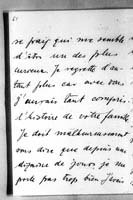 se fait qui me semble
d'être un des plus
heureux. Je regrette d'au-
tant plus car avec vous
j'aurais tant compris
l'histoire de votre famille
Je dois malheureusement
vous dire que depuis une
dizaine de jours je me
porte pas trop bien j'avais